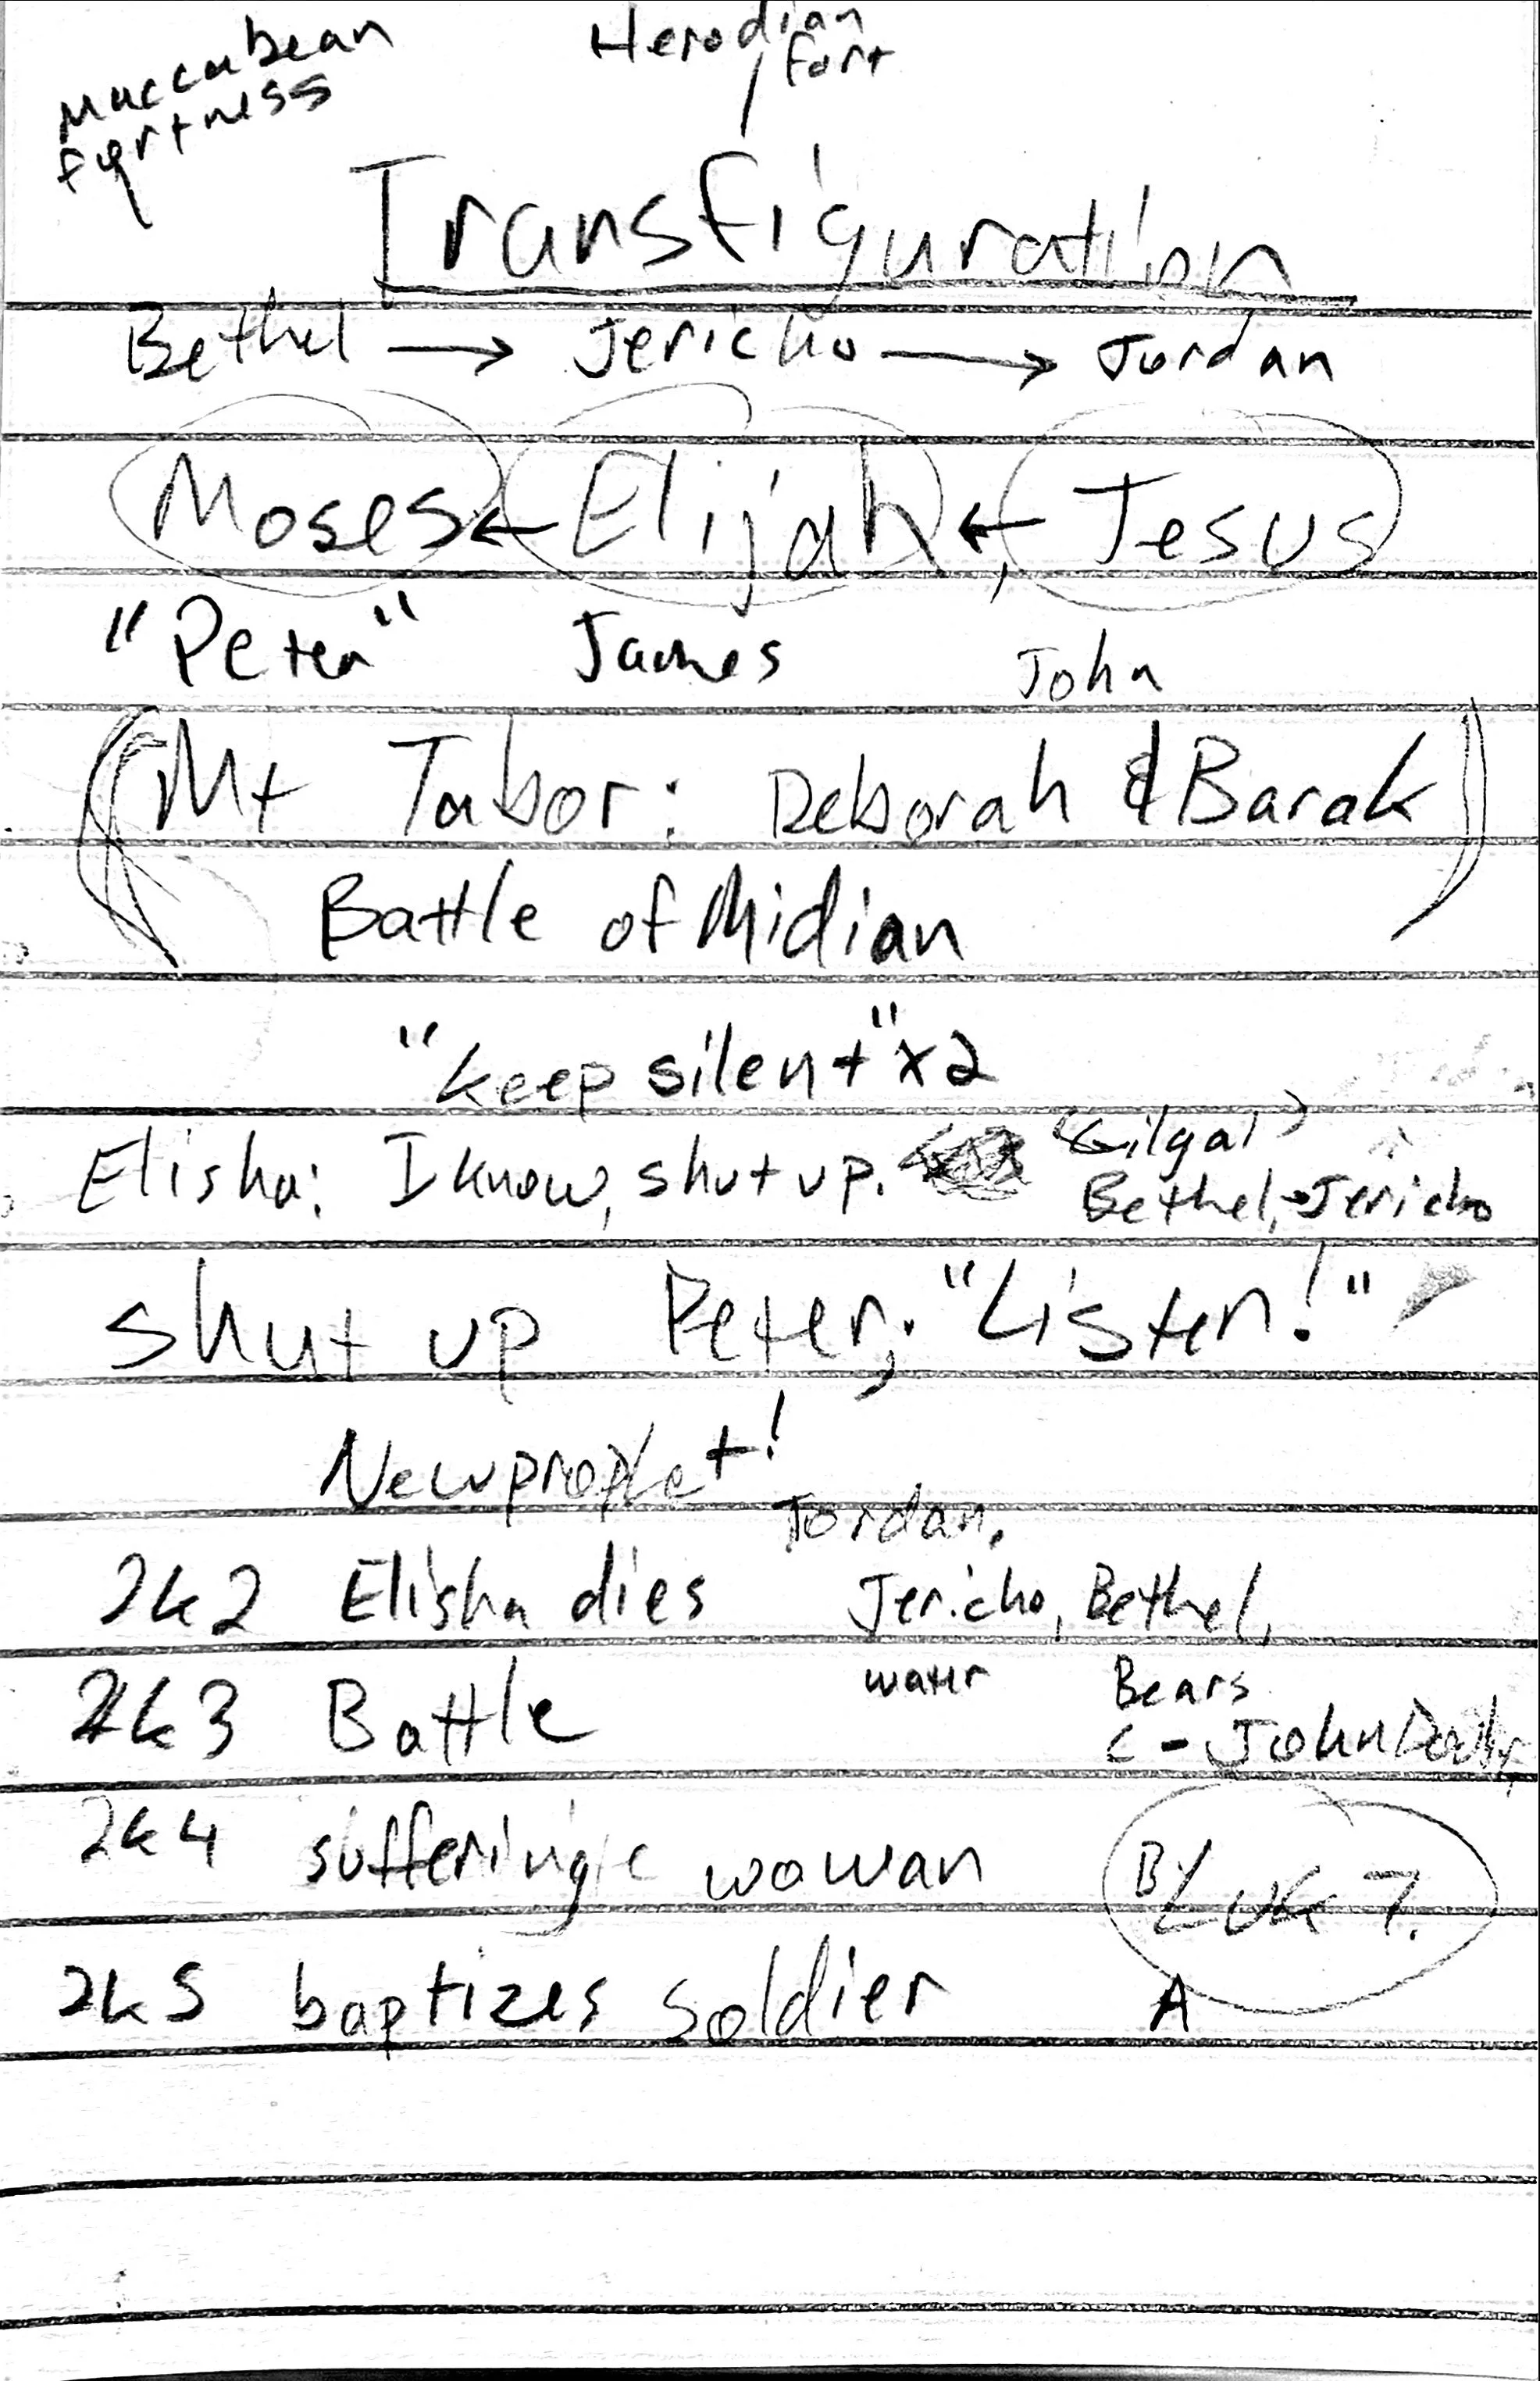 Maccabean
fortress
Herodian
Fort
Transfiguration
Bethel → Jericho → Jordan
Moses ← Elijah ← Jesus
"Peter" James John
(Mt Tabor: Deborah & Barak
Battle of Midian)
"keep silent" x2
(Gilgal)
Elisha: I know, shut up. Bethel, Jericho
shut up Peter, "Listen!"
New prophet!
Jordan,
2k2 Elisha dies Jericho, Bethel,
water Bears
2k3 Battle C - John
2k4 suffering woman B Luke 7.
2k5 baptizes soldier A